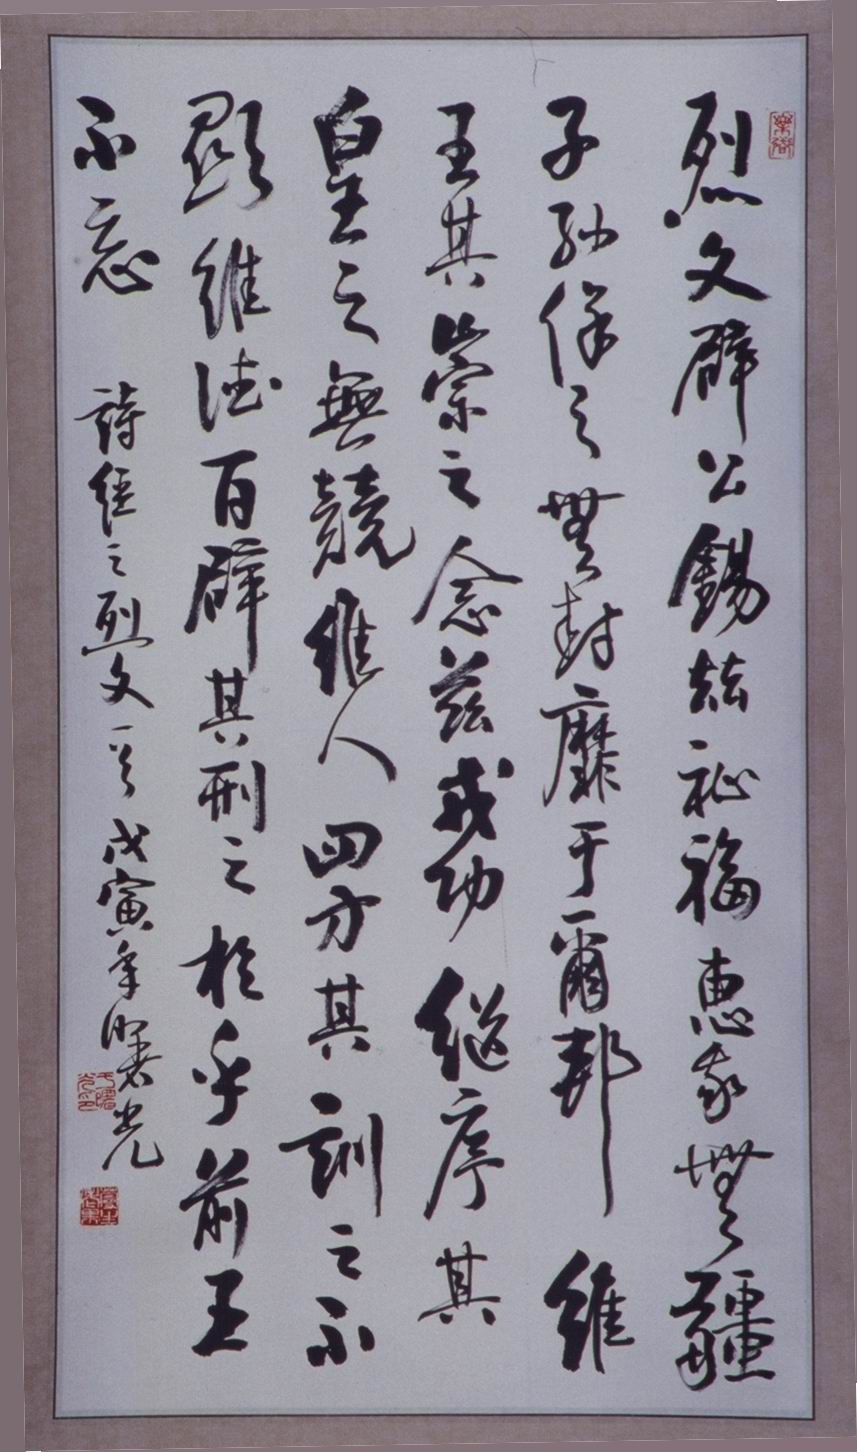 烈文辟公錫茲祉福惠我無疆
子孫保之無封靡于爾邦維
王其崇之念茲戎功繼序其
皇之無競維人四方其訓之不
顯維德百辟其刑之於乎前王
不忘 詩經之烈文一 戊寅年曙光